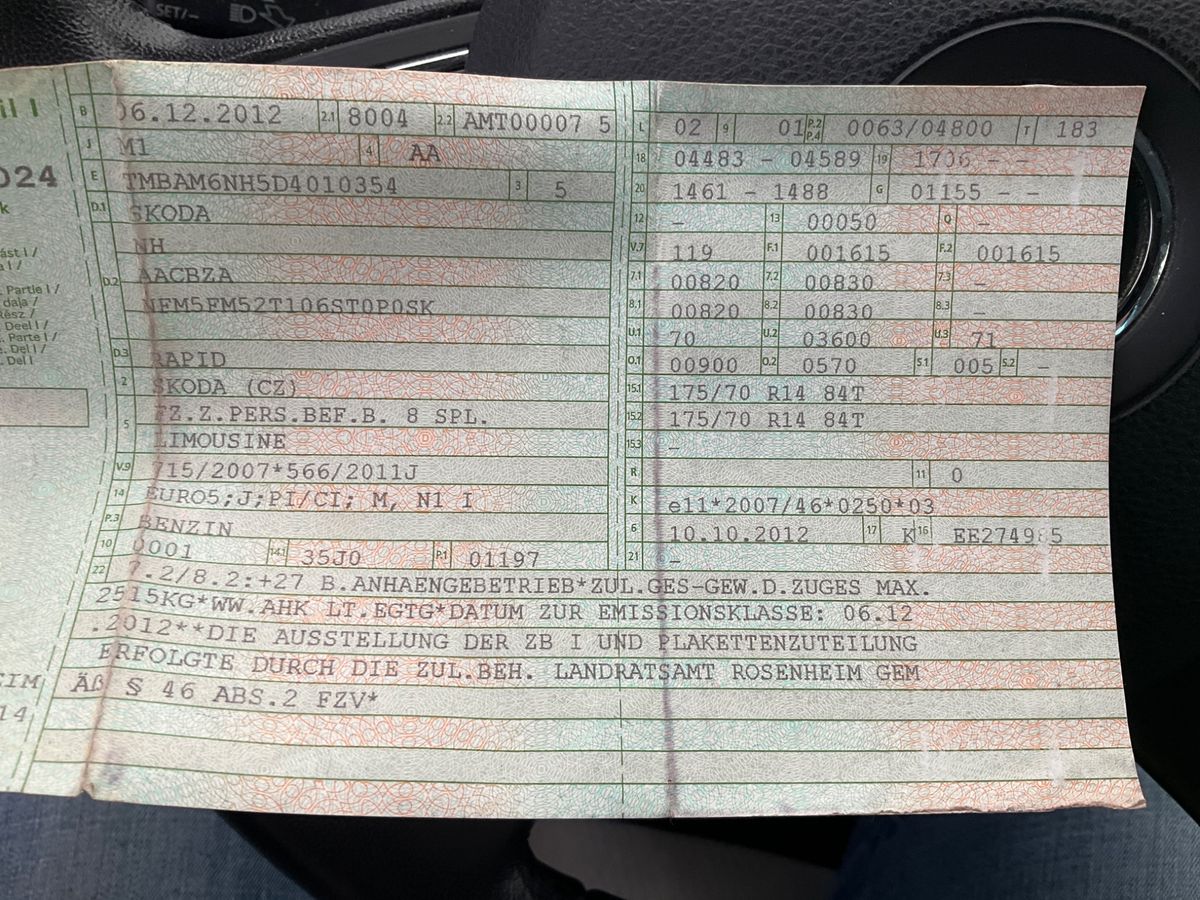 SET/-
il I
024
k
ást I /
a I /
. Partie I /
daļa /
Rész /
Deel I /
. Parte I /
e. Del I /
. Del I
EIM
14,
B 06.12.2012 2.1 8004 2.2 AMT00007 5
J M1 4 AA
E TMBAM6NH5D4010354 3 5
D.1 SKODA
NH
D.2 AACBZA
NFM5FM52T106ST0P0SK
D.3 RAPID
2 SKODA (CZ)
5 FZ.Z.PERS.BEF.B. 8 SPL.
LIMOUSINE
V.9 715/2007*566/2011J
14 EURO5;J;PI/CI; M, N1 I
P.3 BENZIN
10 0001 14.1 35J0 P.1 01197
L 02 9 01 P.2 P.4 0063/04800 T 183
18 04483 - 04589 19 1706 - -
20 1461 - 1488 G 01155 - -
12 - 13 00050 Q -
V.7 119 F.1 001615 F.2 001615
7.1 00820 7.2 00830 7.3 -
8.1 00820 8.2 00830 8.3 -
U.1 70 U.2 03600 U.3 71
O.1 00900 O.2 0570 S.1 005 S.2 -
15.1 175/70 R14 84T
15.2 175/70 R14 84T
15.3 -
R 11 0
K e11*2007/46*0250*03
6 10.10.2012 17 K 16 EE274985
21 -
22 7.2/8.2:+27 B.ANHAENGEBETRIEB*ZUL.GES-GEW.D.ZUGES MAX.
2515KG*WW.AHK LT.EGTG*DATUM ZUR EMISSIONSKLASSE: 06.12
.2012**DIE AUSSTELLUNG DER ZB I UND PLAKETTENZUTEILUNG
ERFOLGTE DURCH DIE ZUL.BEH. LANDRATSAMT ROSENHEIM GEM
Äß § 46 ABS.2 FZV*